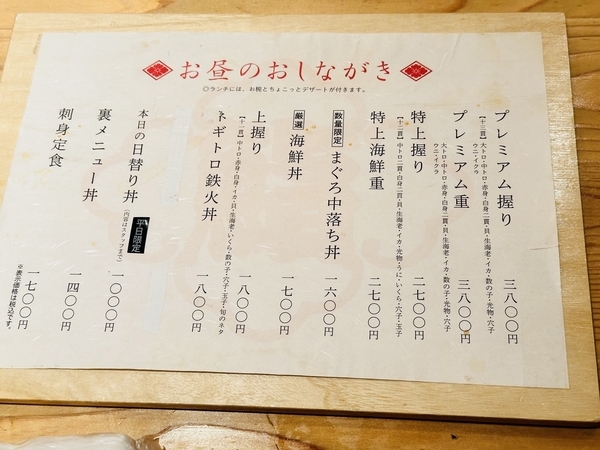 お昼のおしながき
◎ランチには、お椀とちょこっとデザートが付きます。
プレミアム握り 三八〇〇円
【十三貫】大トロ・中トロ・赤身・白身二貫・貝・生海老・イカ・数の子・光物・穴子
ウニ・イクラ
プレミアム重 三八〇〇円
大トロ・中トロ・赤身・白身二貫・貝・生海老・イカ・数の子・光物・穴子
ウニ・イクラ
特上握り 二七〇〇円
【十二貫】中トロ二貫・白身二貫・貝・生海老・イカ・光物・うに・いくら・穴子・玉子
特上海鮮重 二七〇〇円
数量限定 まぐろ中落ち丼 一六〇〇円
厳選 海鮮丼 一七〇〇円
上握り 一八〇〇円
【十一貫】中トロ・赤身・白身・イカ・貝・生海老・いくら・数の子・穴子・玉子・旬のネタ
トギトロ鉄火丼 一八〇〇円
本日の日替り丼 平日限定 一〇〇〇円
(内容はスタッフまで)
裏メニュー丼 一四〇〇円
刺身定食 一七〇〇円
※表示価格は税込です。